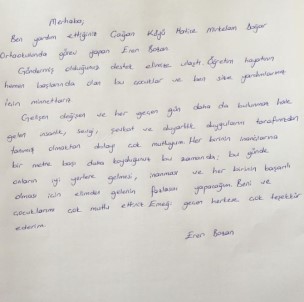 Merhaba,
Ben yardım ettiğiniz Çağan Köyü Hatice Mirkelam Doğar
Ortaokulunda görev yapan Eren Basan
Göndermiş olduğunuz destek elimize ulaştı. Öğretim hayatının
hemen başlarında olan bu çocuklar ve ben size yardımlarınız
için minnettarız.
Gelişen değişen ve her geçen gün daha da bulunmaz hale
gelen insanlık, sevgi, şefkat ve duyarlılık duygularını tarafınızdan
tanımış olmaktan dolayı çok mutluyum. Her birinin inançlarına
bir metre başı daha koyduğunuz bu zamanında; bu günde
onların iyi yerlere gelmesi, inanması ve her birinin başarılı
olması için elimden gelenin fazlasını yapacağım. Beni ve
çocuklarımı çok mutlu ettiniz. Emeği geçen herkese çok teşekkür
ederim.
Eren Basan